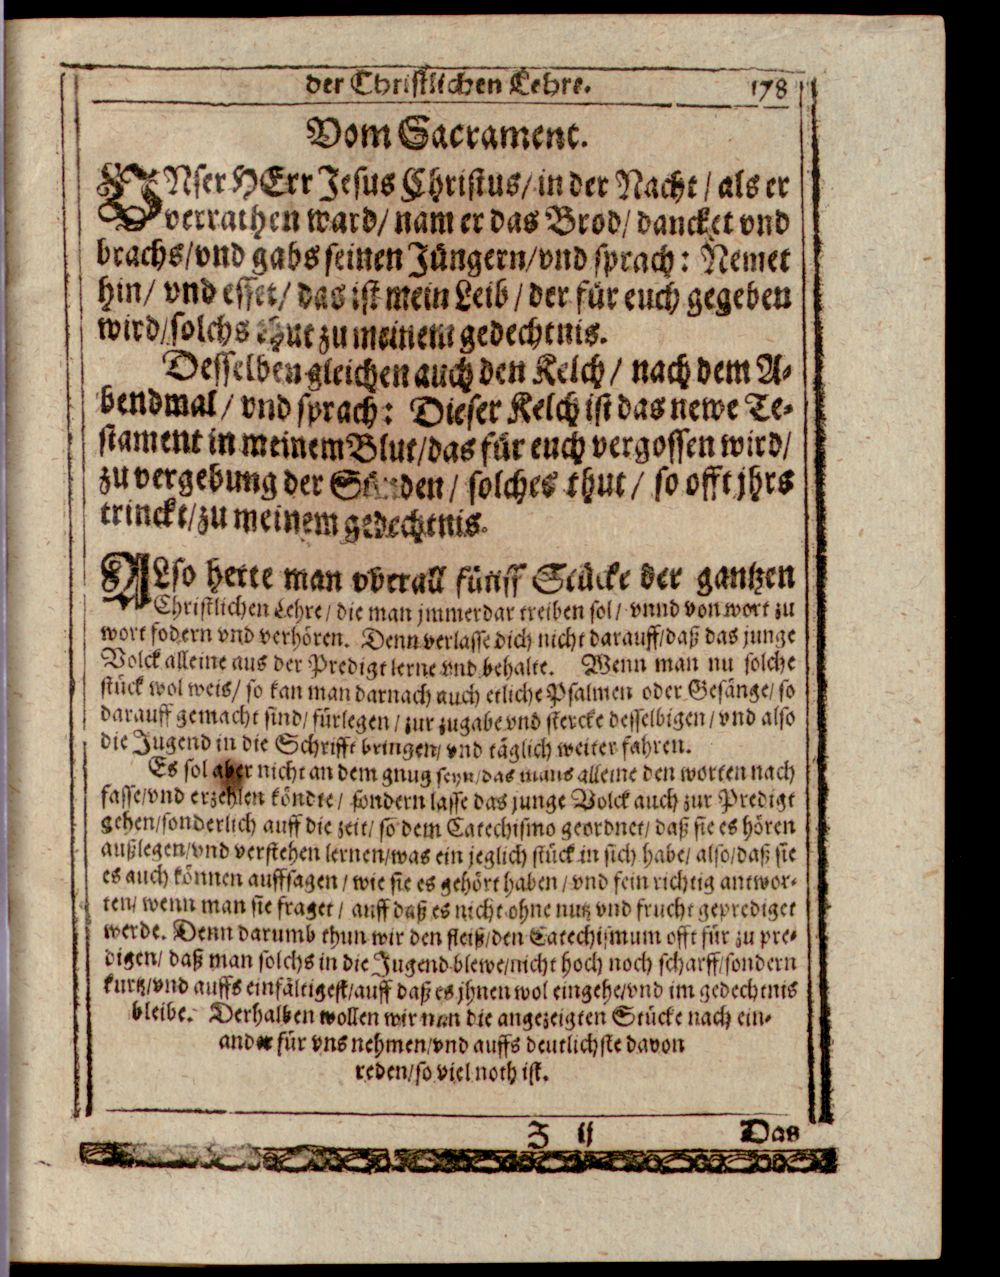 der Christlichen Lehre. 178
Vom Sacrament.
VNser HErr Jesus Christus/ in der Nacht / als er
verrathen ward/ nam er das Brod/ dancket vnd
brachs/vnd gabs seinen Jüngern/vnd sprach: Nemet
hin/ vnd esset/ das ist mein Leib / der für euch gegeben
wird/solchs thut zu meinem gedechtnis.
Desselben gleichen auch den Kelch / nach dem A-
bendmal / vnd sprach: Dieser Kelch ist das newe Te-
stament in meinem Blut/das für euch vergossen wird/
zu vergebung der Sünden / solches thut / so offt jhrs
trinckt/zu meinem gedechtnis.
ALso hette man vberall fünff Stücke der gantzen
Christlichen Lehre / die man jmmerdar treiben sol / vnnd von wort zu
wort fodern vnd verhören. Denn verlasse dich nicht darauff/daß das junge
Volck alleine aus der Predigt lerne vnd behalte. Wenn man nu solche
stück wol weis/ so kan man darnach auch etliche Psalmen oder Gesänge/ so
darauff gemacht sind/ fürlegen / zur zugabe vnd stercke desselbigen / vnd also
die Jugend in die Schrifft bringen/ vnd täglich weiter fahren.
Es sol aber nicht an dem gnug seyn/das mans alleine den worten nach
fasse/vnd erzehlen köndte / sondern lasse das junge Volck auch zur Predigt
gehen/sonderlich auff die zeit/ so dem Catechismo geordnet/ daß sie es hören
außlegen/vnd verstehen lernen/was ein jeglich stück in sich habe/ also/daß sie
es auch können auffsagen / wie sie es gehört haben / vnd fein richtig antwor-
ten/ wenn man sie fraget / auff daß es nicht ohne nutz vnd frucht geprediget
werde. Denn darumb thun wir den fleiß/den Catechismum offt für zu pre-
digen/ daß man solchs in die Jugend blewe/nicht hoch noch scharff/sondern
kurtz/vnd auffs einfältigest/auff daß es jhnen wol eingehe/vnd im gedechtnis
bleibe. Derhalben wollen wir nun die angezeigten Stücke nach ein-
ander für vns nehmen/vnd auffs deutlichste davon
reden/so viel noth ist.
Z ij Das